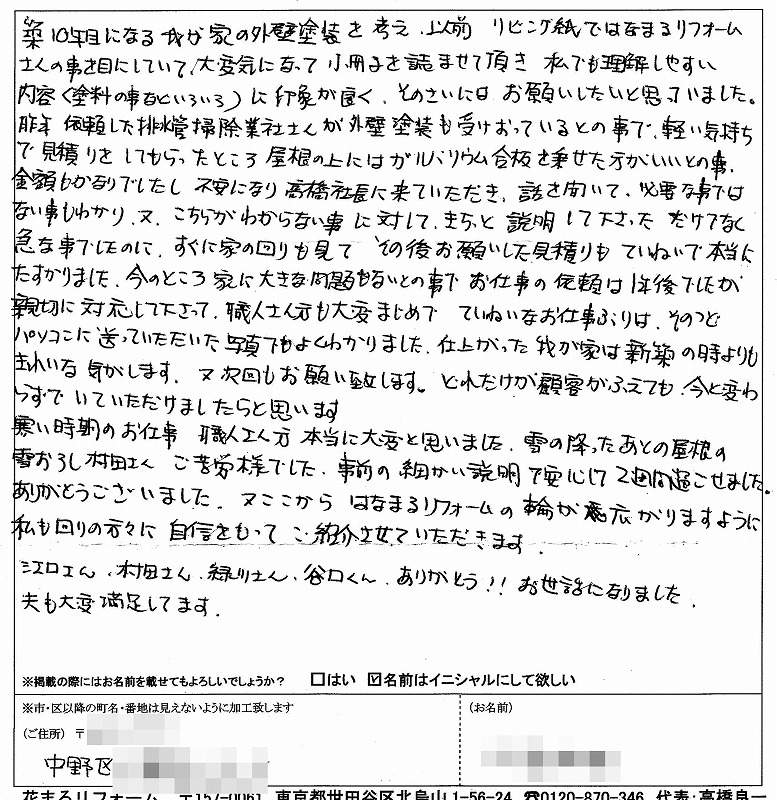 築10年目になる我が家の外壁塗装を考え、以前 リビング紙ではなまるリフォーム
さんの事を目にしていて、大変気になって小冊子を読ませて頂き 私でも理解しやすい
内容（塗料の事などいろいろ）に印象が良く、そのさいには お願いしたいと思っていました。
昨年 依頼した排水管掃除業社さんが外壁塗装も受けおっているとの事で、軽い気持ち
で見積りをしてもらったところ屋根の上にはガルバリウム合板を乗せた方がいいとの事、
金額もかなりでしたし 不安になり高橋社長に来ていただき、話を聞いて、必要な事では
ない事もわかり、又、こちらがわからない事に対して、きちっと説明して下さっただけでなく
急な事でしたのに、すぐに家の回りも見て その後お願いした見積りも ていねいで本当に
たすかりました、今のところ家に大きな問題もないとの事で お仕事の依頼は1年後でしたが
親切に対応して下さって、職人さん方も大変まじめで ていねいなお仕事ぶりは、そのつど
パソコンに送っていただいた写真でもよくわかりました、仕上がった我が家は新築の時よりも
きれいな気がします、又次回もお願い致します。どれだけが顧客がふえても、今と変わ
らずでいていただけましたらと思います
寒い時期のお仕事 職人さん方 本当に大変と思いました、雪の降ったあとの屋根の
雪おろし村田さん ご苦労様でした、事前の細かい説明で安心して2週間過ごせました。
ありがとうございました、又ここから はなまるリフォームの輪が広がりますように
私も回りの方々に自信をもって ご紹介させていただきます。
江口さん、村田さん、緑川さん、谷口くん、ありがとう!! お世話になりました、
夫も大変満足してます、
※掲載の際にはお名前を載せてもよろしいでしょうか？ □はい ☑名前はイニシャルにして欲しい
※市・区以降の町名・番地は見えないように加工致します
（お名前）
（ご住所）〒
中野区
花まるリフォーム 〒157-0061 東京都世田谷区北烏山1-56-24 ☎0120-870-346 代表：高橋良一